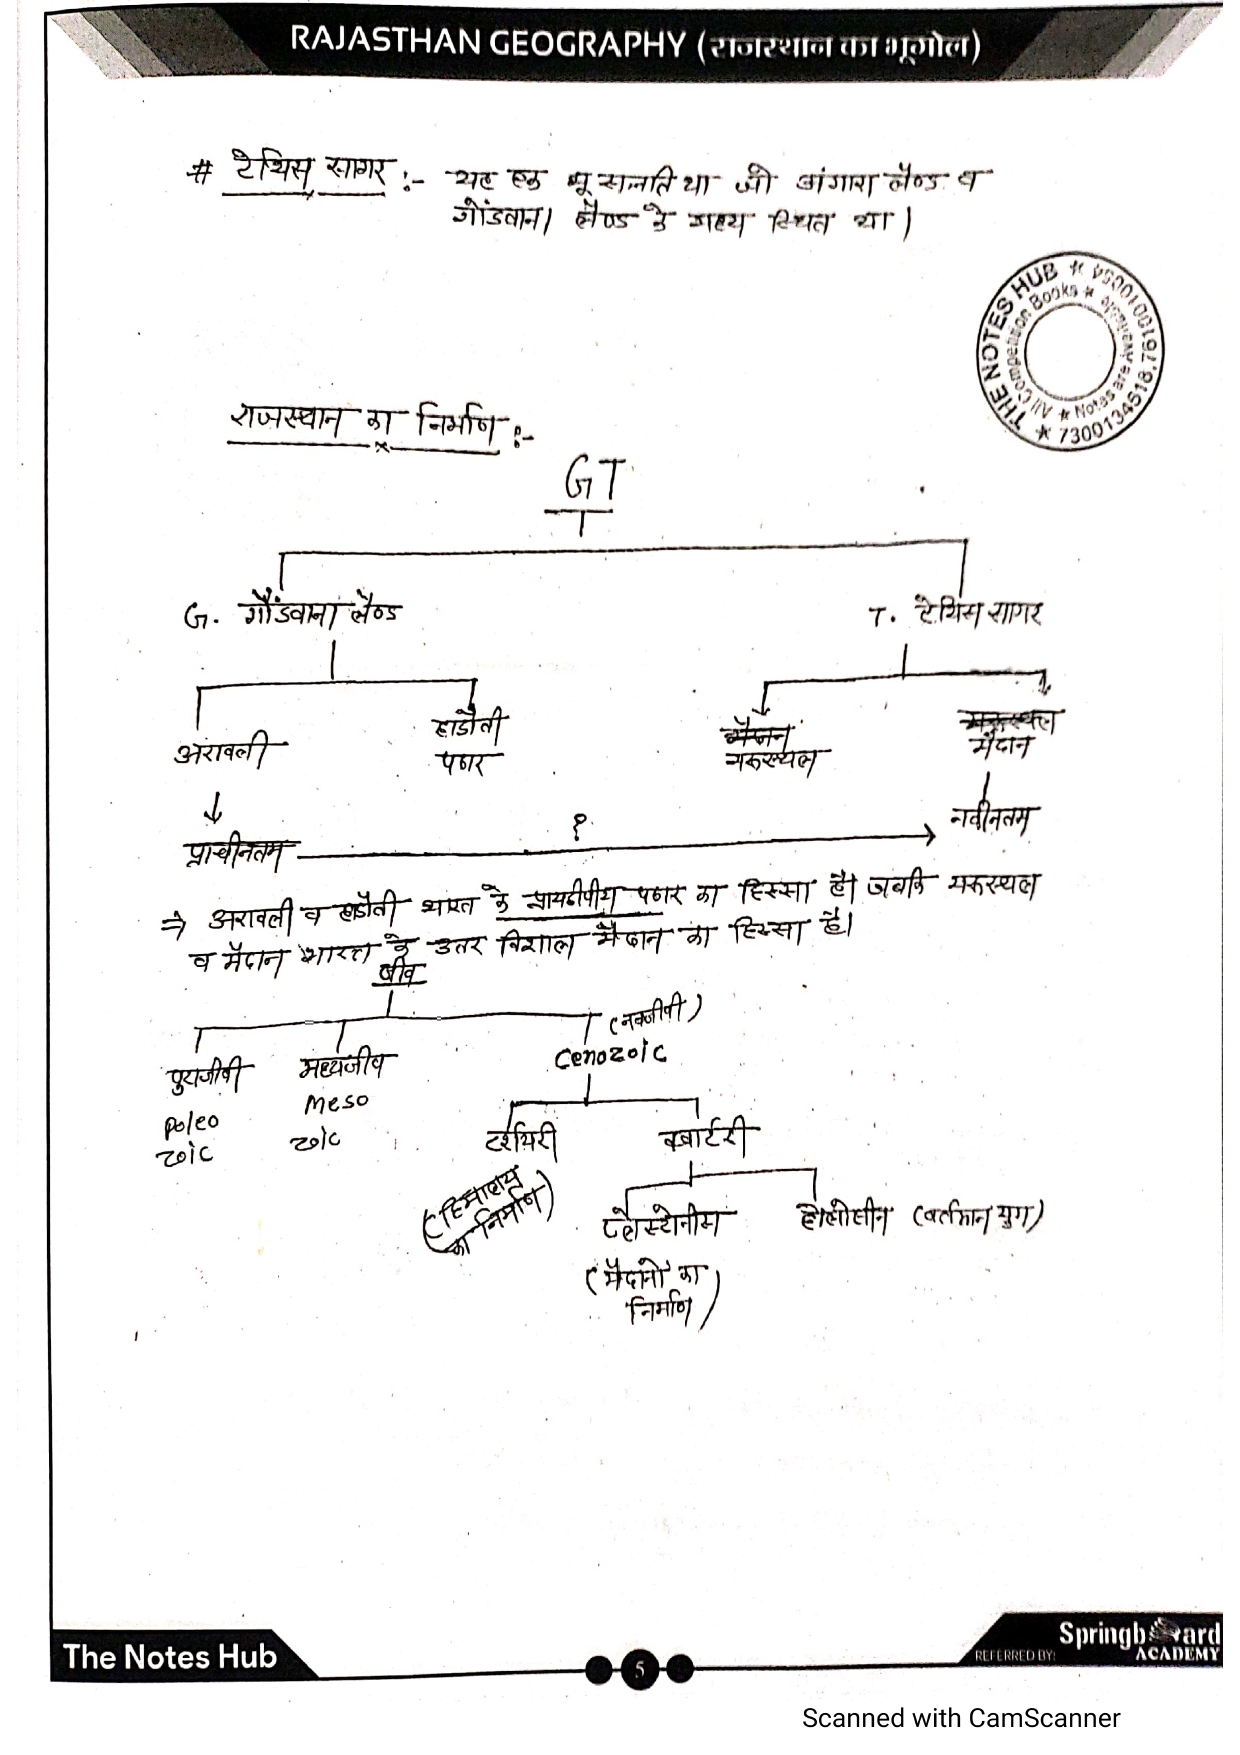 RAJASTHAN GEOGRAPHY (राजस्थान का भूगोल)
# टेथिस सागर :- यह एक भू सन्नति था जो अंगारा लैण्ड व
गोंडवाना लैण्ड के मध्य स्थित था।
THE NOTES HUB ★ 9500100554
★ 7300134518,7610010
All Competition Books ★
★ Notes are available
राजस्थान का निर्माण :-
GT
G. गौंडवाना लैण्ड
T. टेथिस सागर
अरावली
हाडौती
पठार
मैदान
मरुस्थल
मरुस्थल
मैदान
नवीनतम
प्राचीनतम
?
⇒ अरावली व हाडौती भारत के प्रायद्वीपीय पठार का हिस्सा है। जबकि मरुस्थल
व मैदान भारत के उत्तर विशाल मैदान का हिस्सा है।
जीव
पुराजीवी
Poleo
zoic
मध्यजीव
Meso
zoic
(नवजीवी)
Cenozoic
टर्शियरी
(हिमालय
का निर्माण)
क्वार्टरी
प्लीस्टोसीन
(मैदानों का
निर्माण)
होलोसीन (वर्तमान युग)
The Notes Hub
5
REFERRED BY:
Springboard
ACADEMY
Scanned with CamScanner